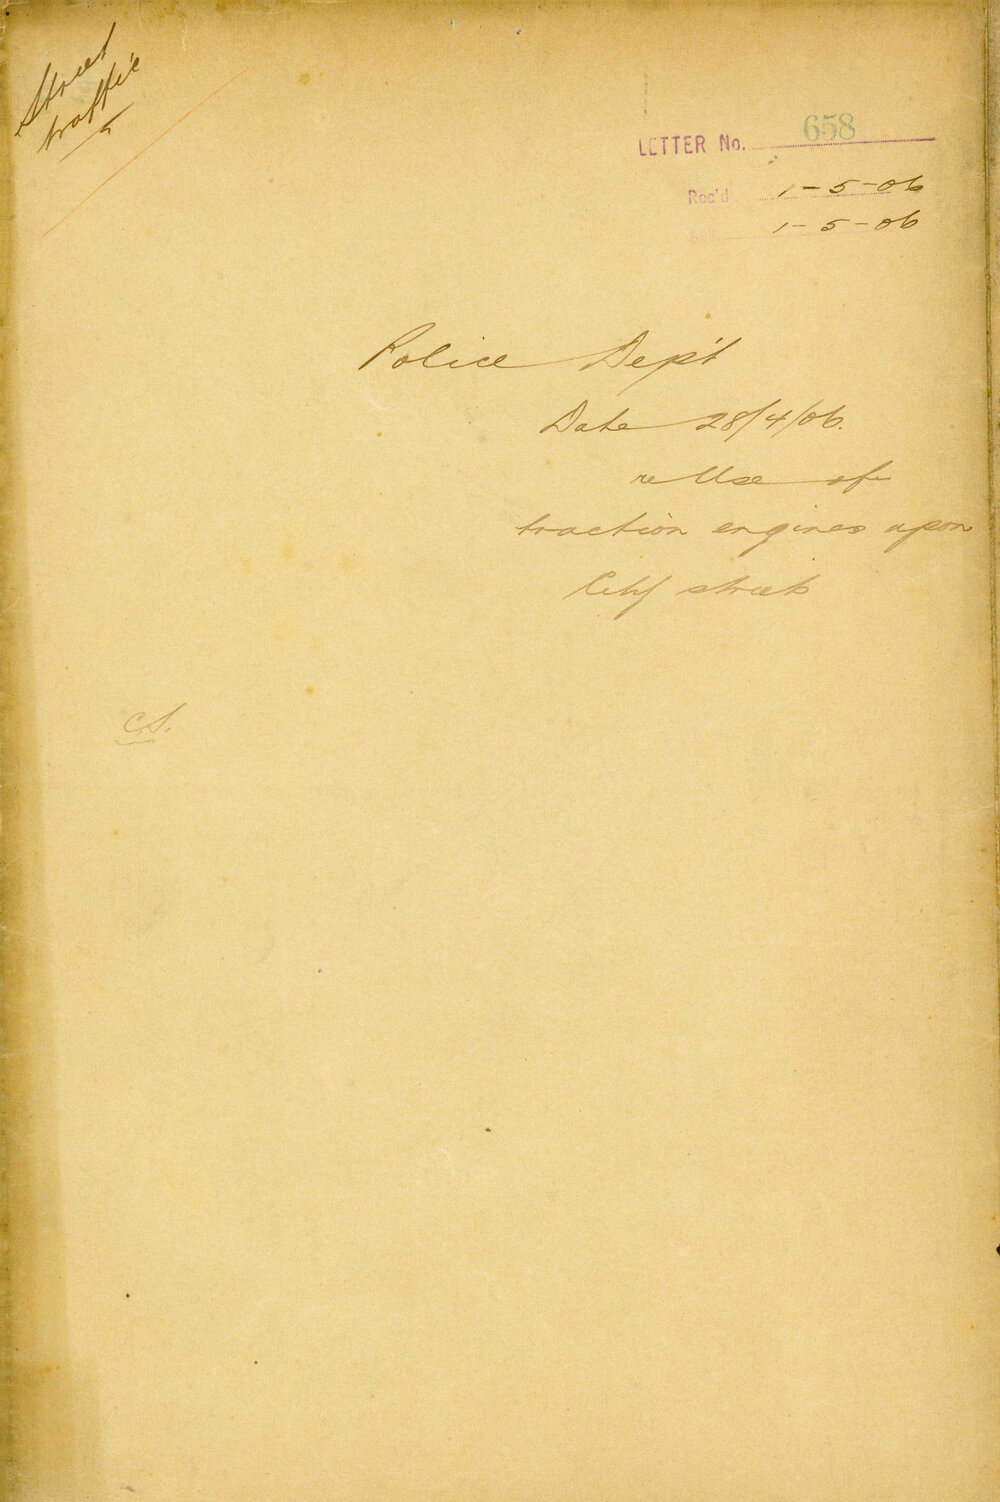 Street
traffic
LETTER No. 658
Rec'd 1-5-06
1-5-06
Police Dep't
Date 28/4/06.
re Use of
traction engines upon
City streets
C.S.